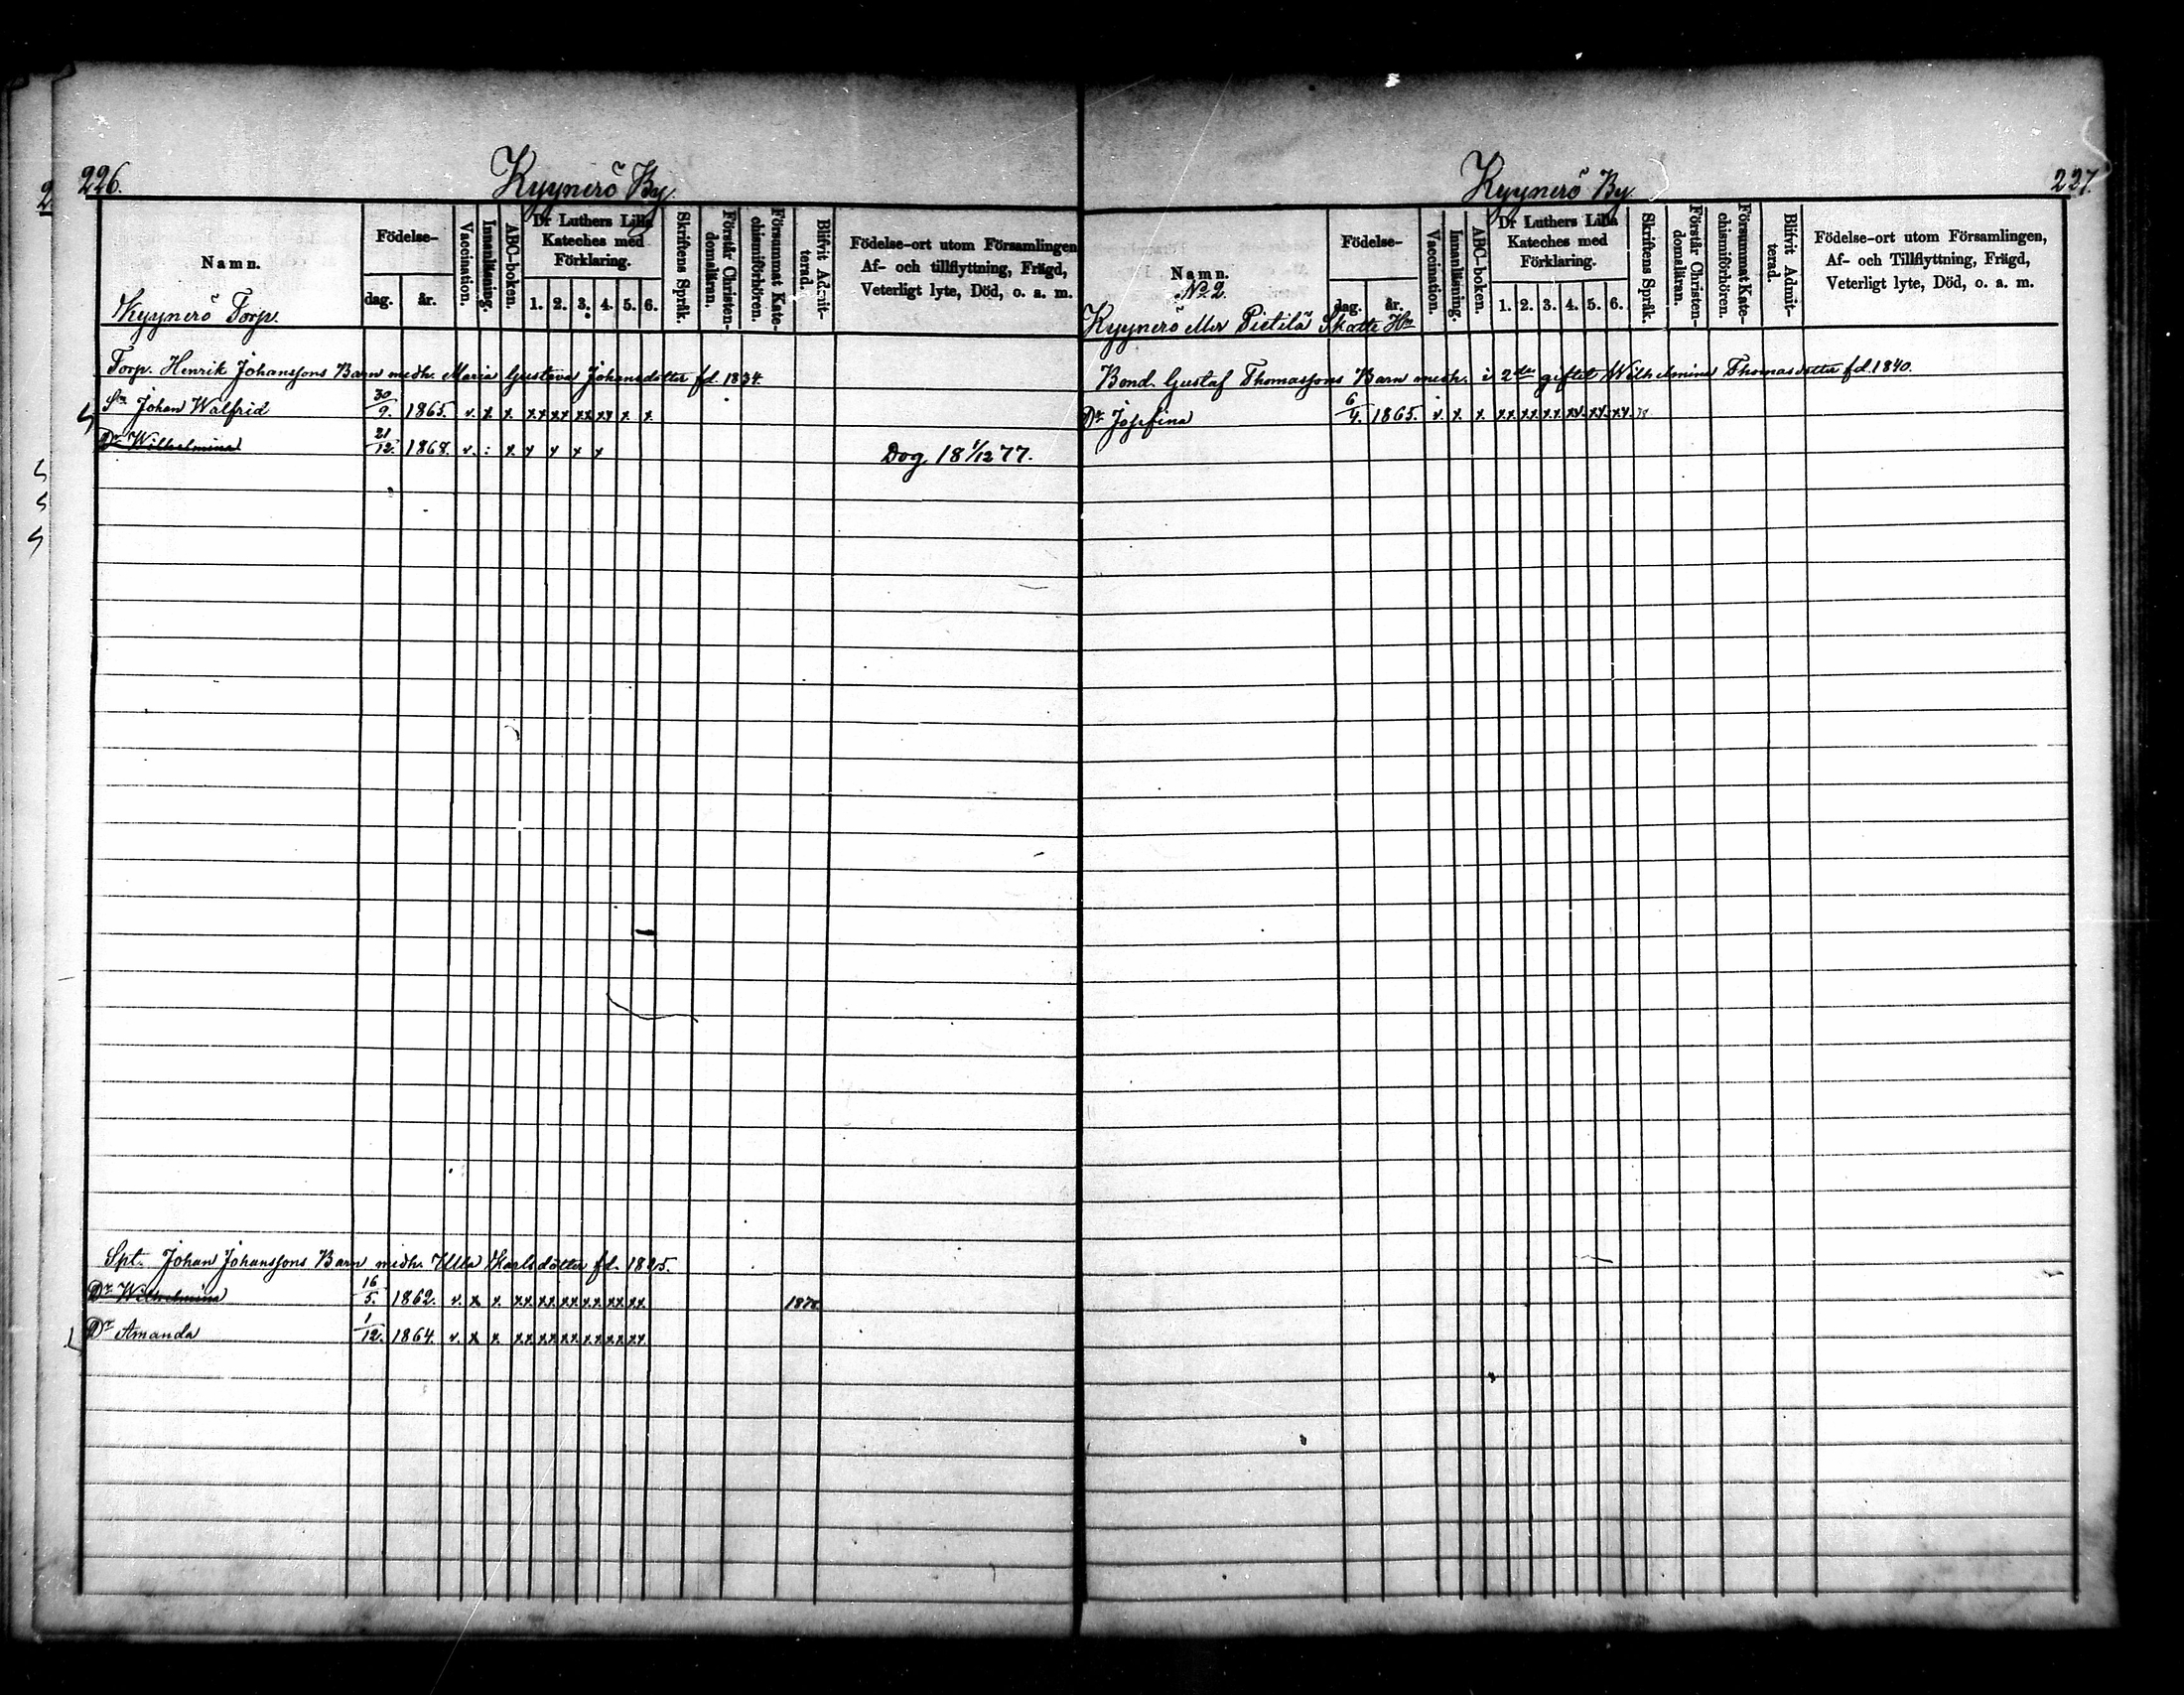 226.
Kyynerö By.
Namn.
Födelse-
dag.
år.
Vaccination.
Innanläsning.
ABC-boken.
Dr Luthers Lilla
Kateches med
Förklaring.
1. 2. 3. 4. 5. 6.
Skriftens Språk.
Förstår Christen-
domsläran.
Försummat Kate-
chismiförhören.
Blifvit Admit-
terad.
Födelse-ort utom Församlingen
Af- och tillflyttning, Frägd,
Veterligt lyte, Död, o. a. m.
Kyynerö Torp.
Torp. Henrik Johanssons Barn medh. Maria Gustava Johansdotter fd. 1834.
Sn Johan Walfrid 30/9. 1865. v. x x. xx xx xx xx x. x.
Dr Wilhelmina 21/12. 1868. v. : x. x x x x Dog 18 1/12 77.
Spt. Johan Johanssons Barn medh. Ulla Karlsdotter fd. 1825.
Dr Wilhelmina 16/5. 1862. v. x x. xx xx. xx x.x. xx xx. 1878.
Dr Amanda 1/12. 1864. v. x x. xx xx xx xx xx xx.
227.
Kyynerö By
Namn.
No 2.
Födelse-
dag.
år.
Vaccination.
Innanläsning.
ABC-boken.
Dr Luthers Lilla
Kateches med
Förklaring.
1. 2. 3. 4. 5. 6.
Skriftens Språk.
Förstår Christen-
domsläran.
Försummat Kate-
chismiförhören.
Blifvit Admit-
terad.
Födelse-ort utom Församlingen,
Af- och Tillflyttning, Frägd,
Veterligt lyte, Död, o. a. m.
Kyynerö eller Pietilä Skatte Hn
Bond. Gustaf Thomassons Barn medh. i 2dra giftet Wilhelmina Thomasdotter fd. 1840.
Dr Josefina 6/4. 1865. v. x. x. xx. xx. xx xx. xx. xx.